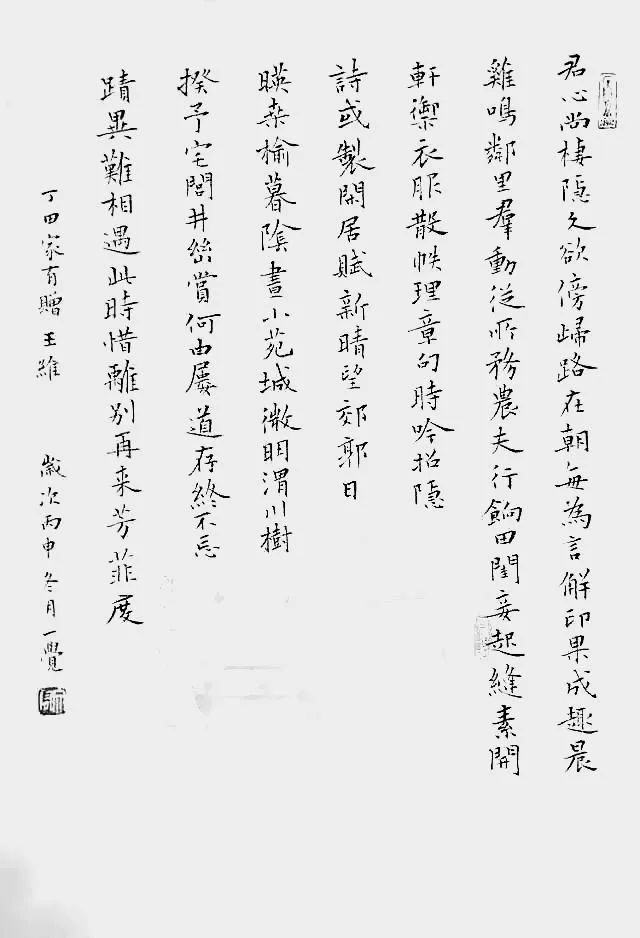 君心尚棲隱久欲傍歸路在朝每為言解印果成趣晨
雞鳴鄰里羣動從所務農夫行餉田閨妾起縫素開
軒禦衣服散帙理章句時吟招隱
詩或製閑居賦新晴望郊郭日
暎桑榆暮陰晝小苑城微明渭川樹
揆予宅閭井幽賞何由屢道存終不忘
蹟異難相遇此時惜離別再来芳菲度
丁田家有贈 王維 歲次丙申冬月一覺